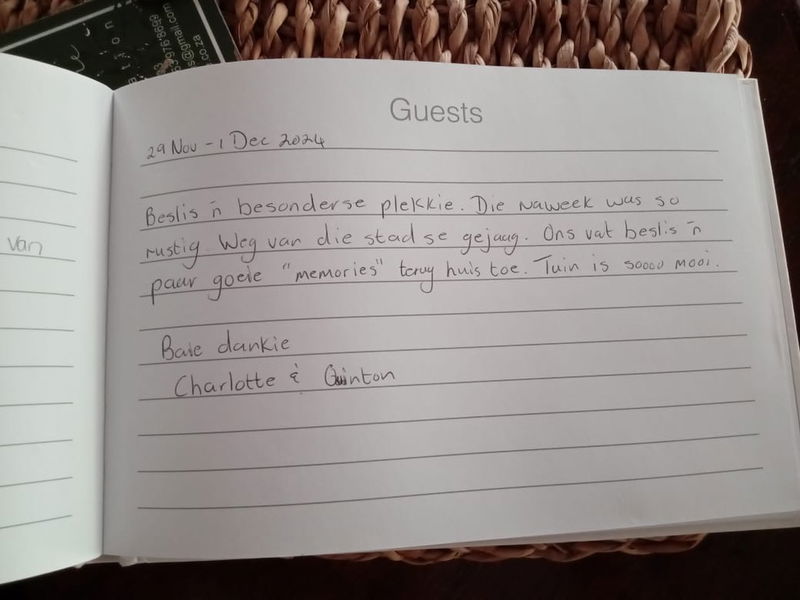 s@gmail.com
co.za
Guests
29 Nov - 1 Dec 2024
Beslis 'n besonderse plekkie. Die naweek was so
rustig. Weg van die stad se gejaag. Ons vat beslis 'n
paar goeie "memories" terug huis toe. Tuin is soooo mooi.
Baie dankie
Charlotte & Quinton
van